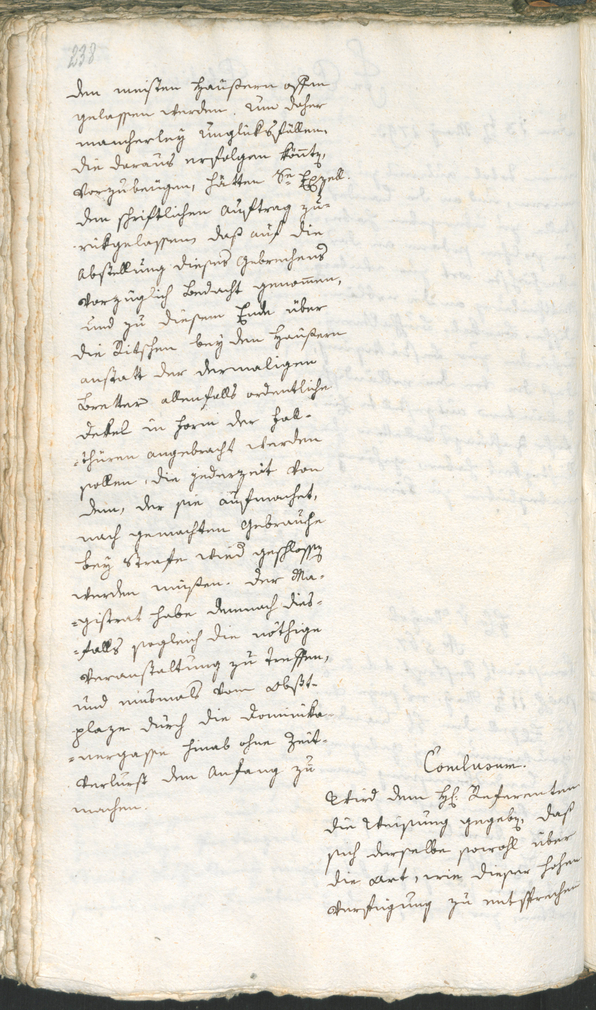 238
den meisten Häußern offen
gelassen werden. Um daher
mancherley Unglüksfällen,
die daraus erfolgen könnten,
vorzubeugen, hätten Se Exzell.
den schriftlichen Auftrag zu-
rükgelassen, daß auf die
Abstellung dieses Gebrechens
vorzüglich Bedacht genommen,
und zu diesem Ende über
die Ritschen bey den Häußern
anstatt der dermaligen
Bretter allenfalls ordentliche
Dekel in Form der Fall-
-thüren angebracht werden
sollen, die jederzeit von
dem, der sie aufmachet,
nach gemachten Gebrauche
bey Strafe wied geschlossen
werden müßen. Der Ma-
-gistrat habe demnach dies-
-falls sogleich die nöthige
Veranstaltung zu treffen,
und musmals vom Obst-
plaze durch die Dominika-
-nergasse hinab ohne Zeit-
verlurst den Anfang zu
machen.
Conclusum.
Wird dem H: Referenten
die Weisung gegeben, daß
sich derselbe sowohl über
die Art, wie dieser hohen
Verfügung zu entsprechen